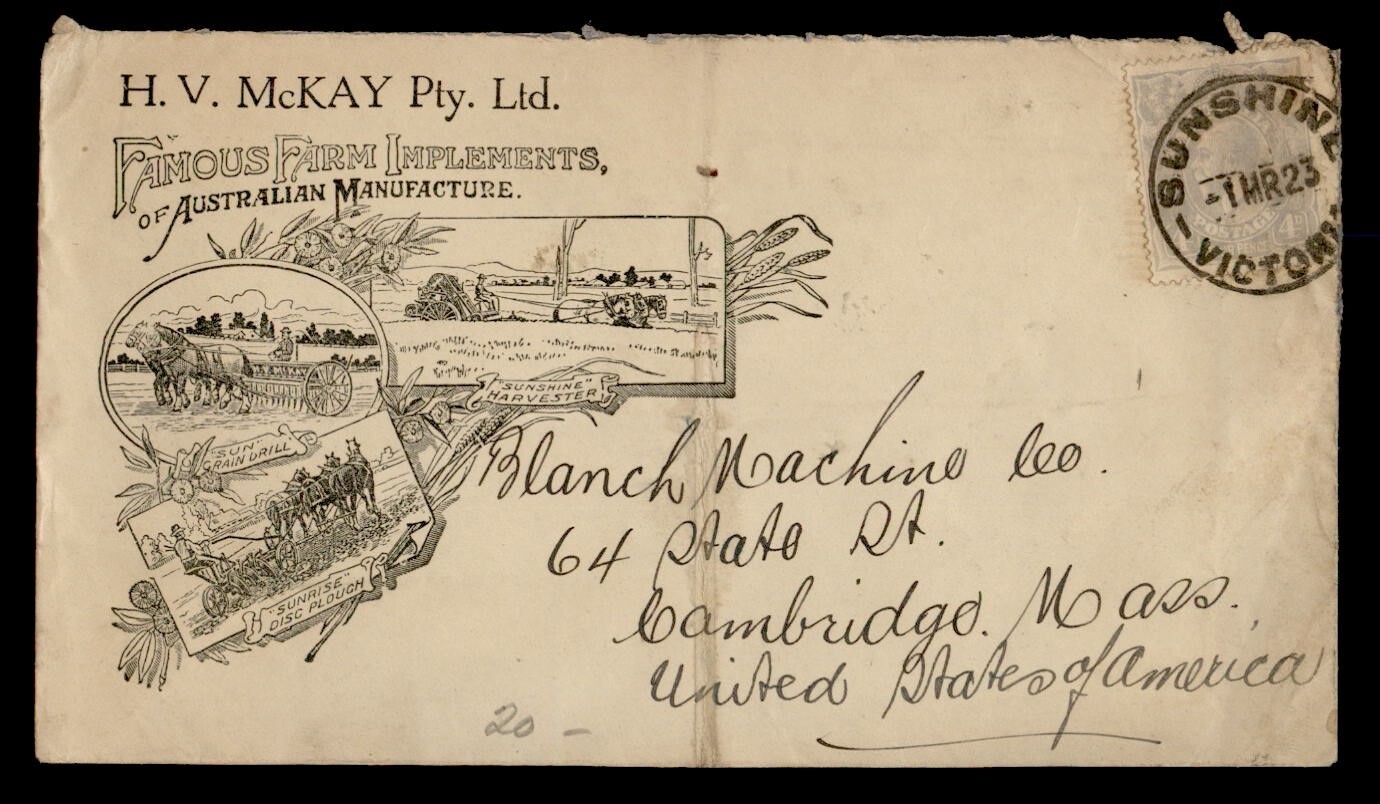 H. V. McKAY Pty. Ltd.
FAMOUS FARM IMPLEMENTS,
OF AUSTRALIAN MANUFACTURE.
"SUNSHINE"
HARVESTER
"SUN"
GRAIN DRILL
"SUNRISE"
DISC PLOUGH
SUNSHINE
-1 MR 23
VICTORIA
POSTAGE
4D
PENCE
Blanch Machine Co.
64 State St.
Cambridge. Mass.
United States of America
20 -